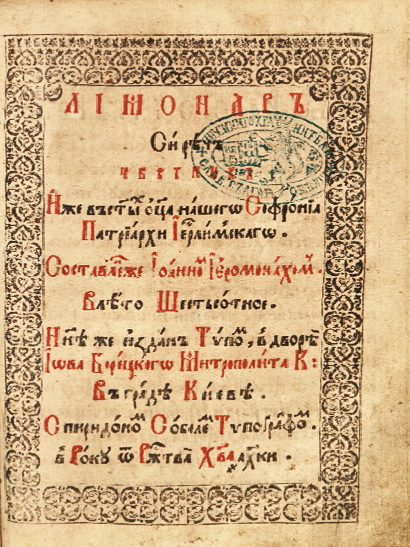 ЛІМОНАР Ъ
Си рѣчъ
ЦВѢТНИКЪ
Иже въ ст҃ы ѻц҃а нашегѡ Сѡфронїа
Патрїархи Іер҃лимскагѡ .
Составленже Іѡанномъ Іеромонахом .
В лѣто Шестьсотное .
Н н҃ѣ же издан Тѵпом , в дворѣ
Іѡва Борецкогѡ Митрополита К :
Въ градѣ Кіевѣ .
Спиридоном Соболем Тѵпоґрафом .
в Року ѿ Рж҃тва Хв҃а